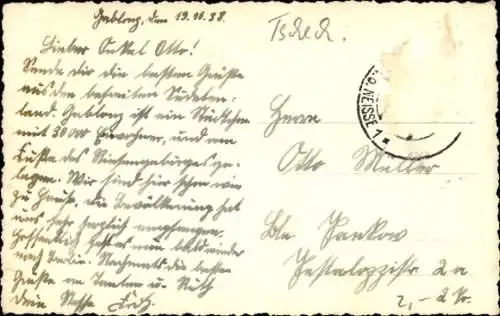 Gablonz, den 19.10.38.
Tschech.
Lieber Onkel Otto!
Sende dir die besten Grüße
aus dem befreiten Sudeten-
land. Gablonz ist ein Städtchen
mit 30000 Einwohner, und am
Fuße des Riesengebirges ge-
legen. Wir sind hier schon wie
zu Hause, die Bevölkerung hat
uns sehr herzlich empfangen.
Hoffentlich geht es nun bald wieder
nach Berlin. Nochmals die besten
Grüße an Tanten u. Ruth
dein Neffe Fritz.
NEISSE 1
Herrn
Otto Müller
Bln Pankow
Pestalozzistr 2a
2,-